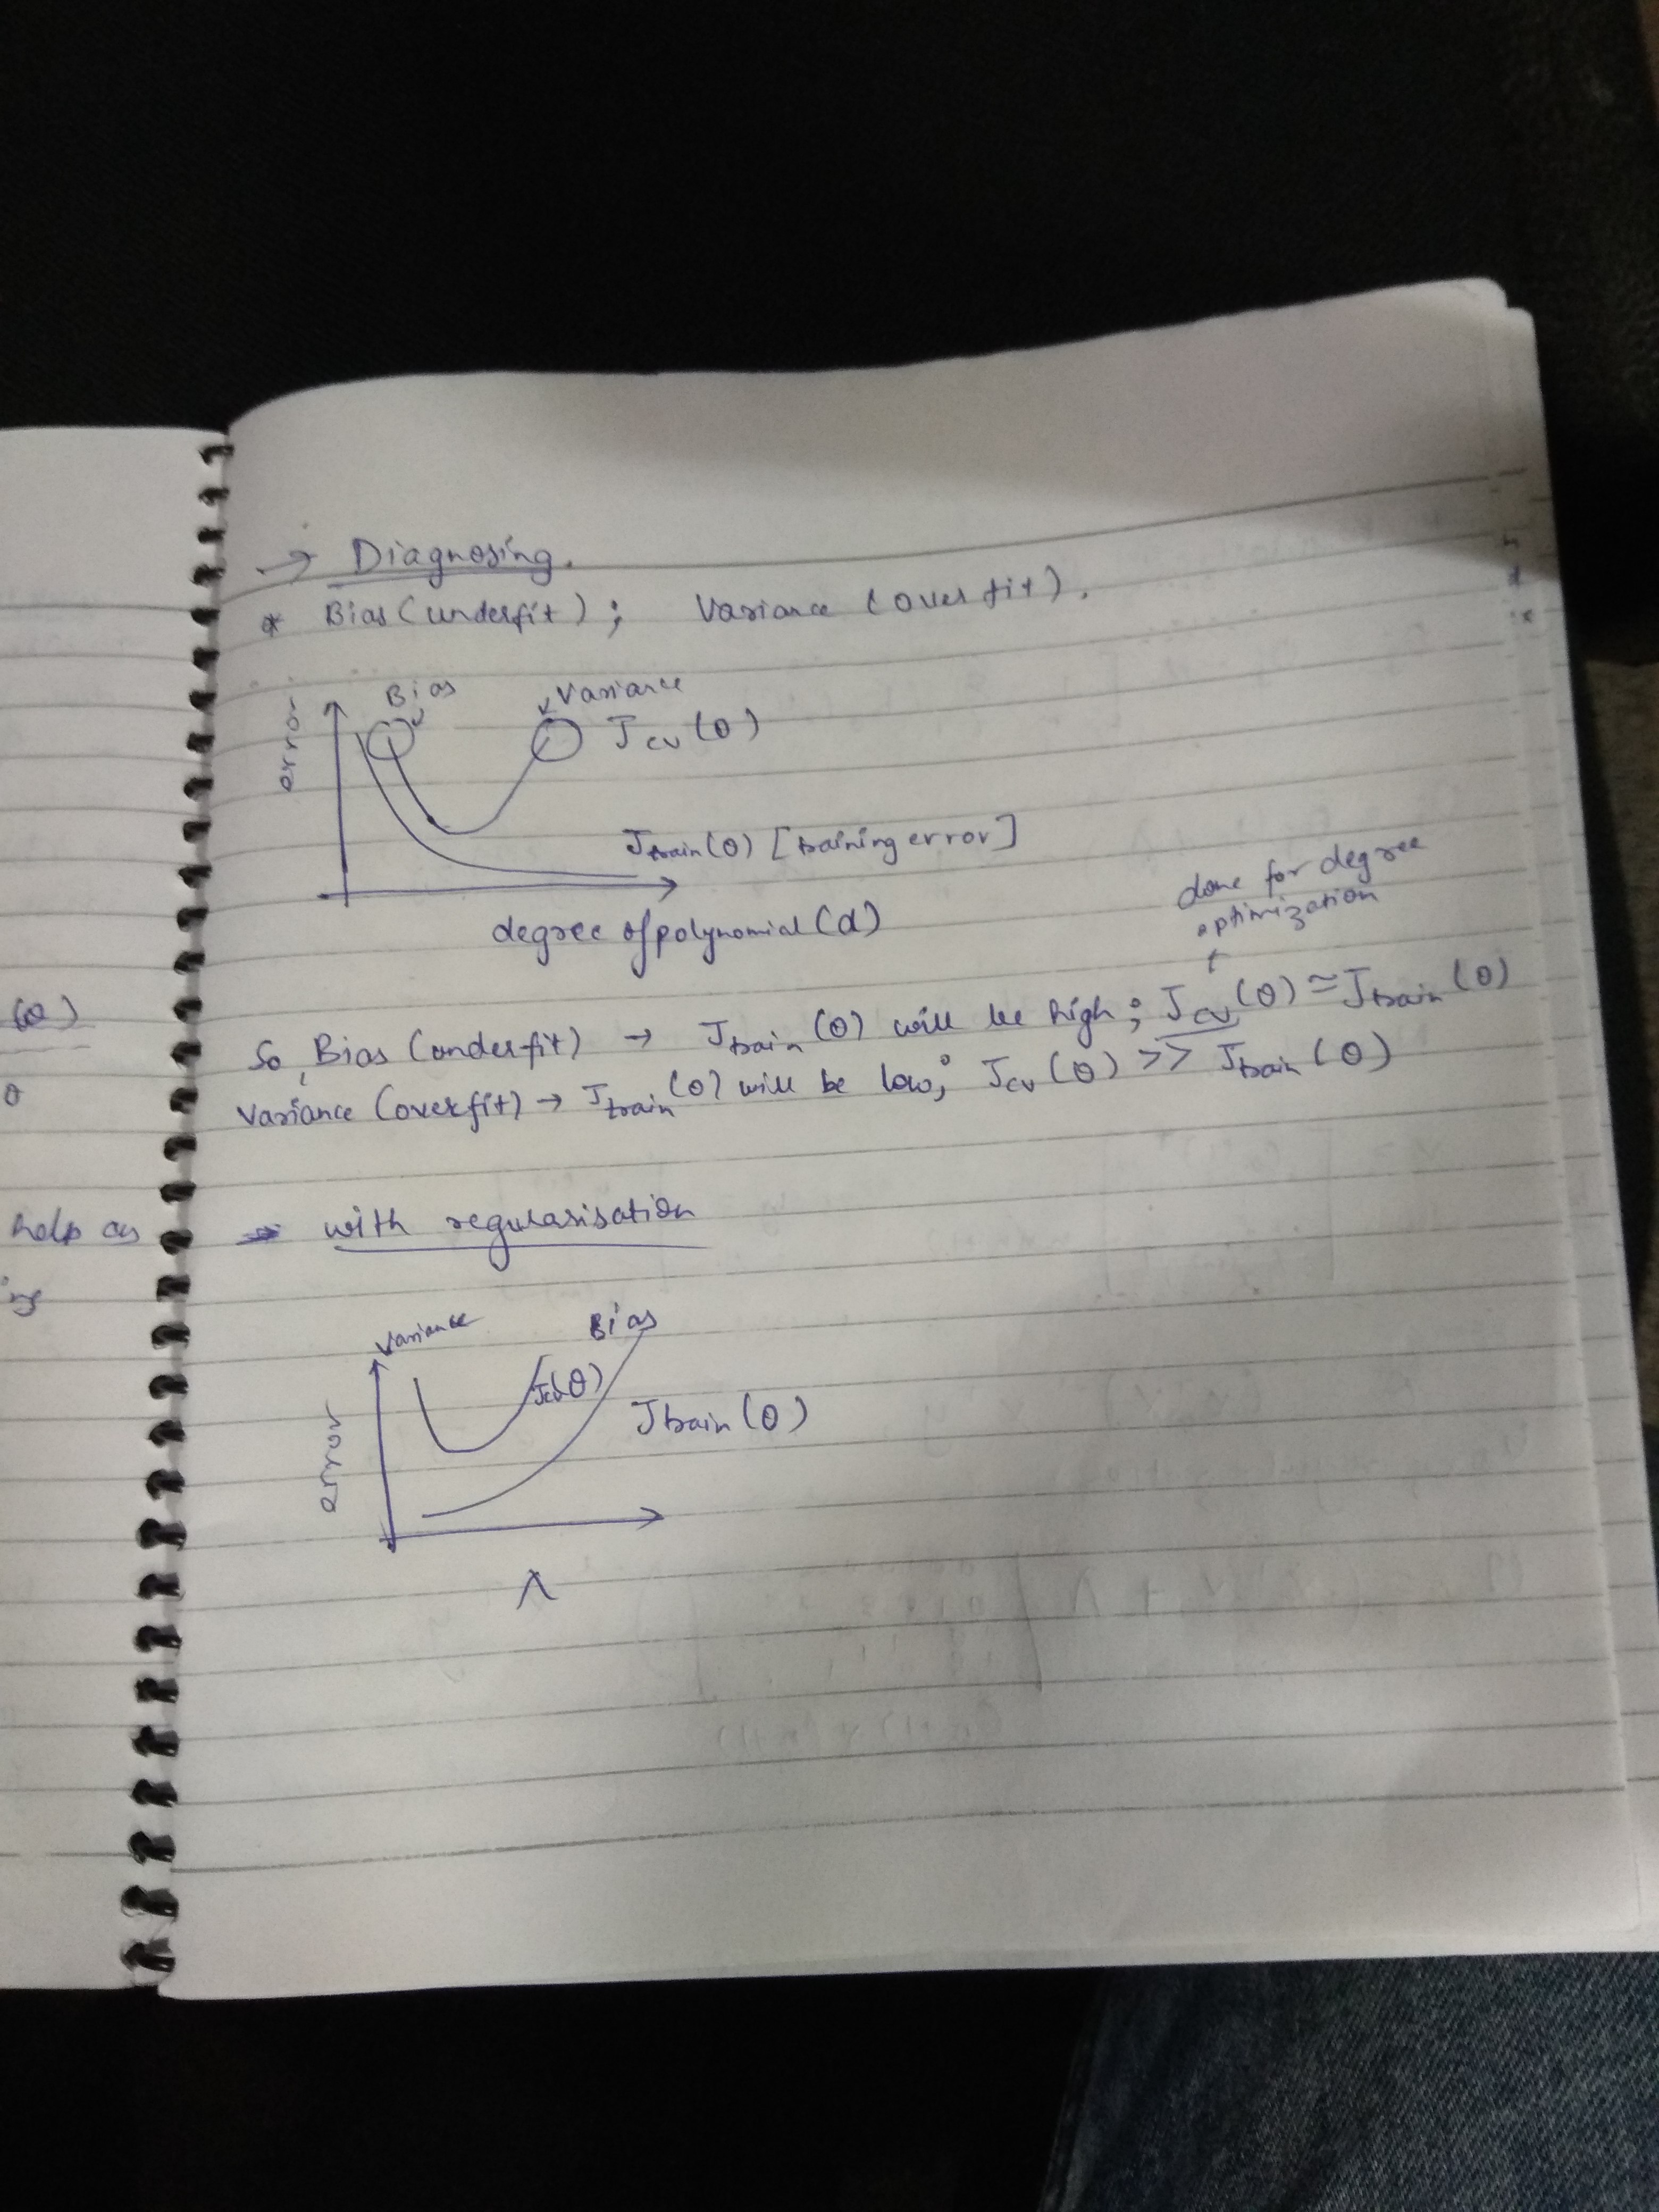 → Diagnosing.
* Bias (underfit) ; Variance (overfit).
Bias
Variance
error
Jcv(θ)
Jtrain(θ) [training error]
degree of polynomial (d)
done for degree
optimization
So, Bias (underfit) → Jtrain(θ) will be high; Jcv(θ) ≃ Jtrain(θ)
Variance (overfit) → Jtrain(θ) will be low; Jcv(θ) >> Jtrain(θ)
(θ)
θ
help
→ with regularisation
Variance
Bias
Jcv(θ)
error
Jtrain(θ)
λ